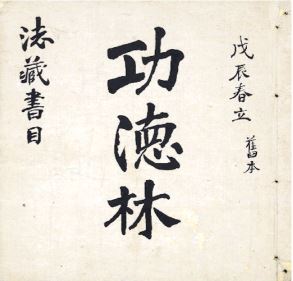 戊辰春立 舊本
功德林
法藏書目